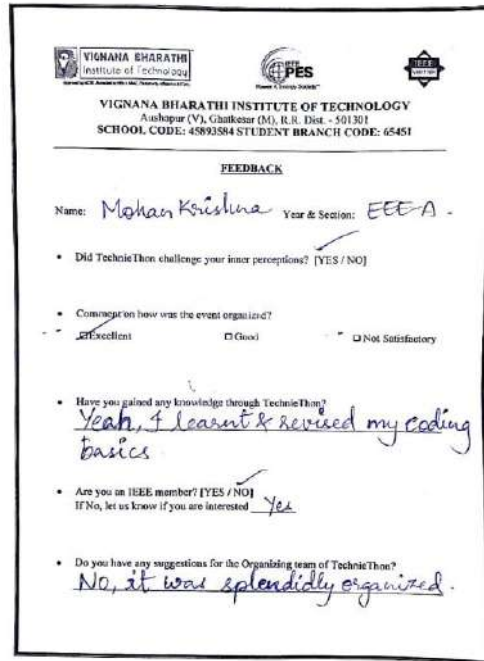 VIGNANA BHARATHI
Institute of Technology
IEEE
PES
Power & Energy Society
IEEE
VIGNANA BHARATHI INSTITUTE OF TECHNOLOGY
Aushapur (V), Ghatkesar (M), R.R. Dist. - 501301
SCHOOL CODE: 45893584 STUDENT BRANCH CODE: 65451
FEEDBACK
Name: Mohan Krishna Year & Section: EEE-A.
• Did TechnieThon challenge your inner perceptions? [YES / NO]
• Comment on how was the event organized?
Excellent Good Not Satisfactory
• Have you gained any knowledge through TechnieThon?
Yeah, I learnt & revised my coding
basics
• Are you an IEEE member? [YES / NO]
If No, let us know if you are interested Yes
• Do you have any suggestions for the Organizing team of TechnieThon?
No, it was splendidly organized.